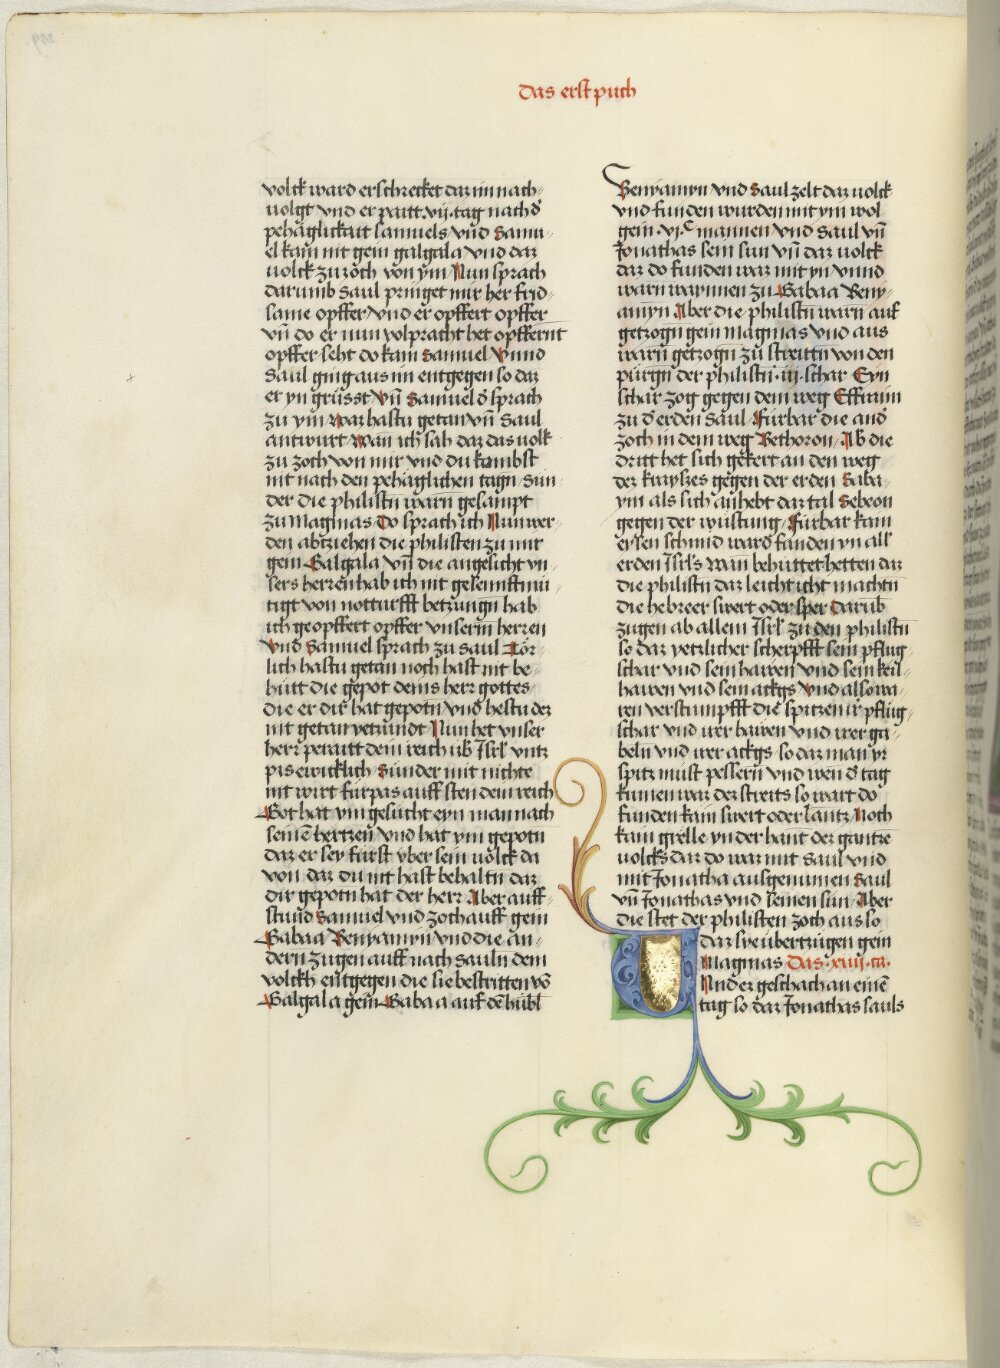 Das erst puch
volck ward erschrecket daz im nach-
uolgt vnd er paitt .vij. tag nach d̄
pehäglickait samuels vnd Samu-
el kam nit gein galgala vnd daz
uolck zu zoch von ym Nun sprach
darumb Saul pringet mir her frid-
same opffer vnd er opffert opffer
vn̄ do er nun volpracht het opffernt
opffer seht do kam Samuel Vnnd
Saul ging aus im entgegen so daz
er yn grüsst Vn̄ Samuel d̄ sprach
zu ym Waz hastu getan vn̄ Saul
antwurt Wan ich sah daz das uolk
zu zoch von mir vnd du kambst
nit nach den pehäglichen tagn Sun-
der die philistn warn gesampt
zu Magmas Do sprach ich Nun wer-
den abtziehen die philisten zu mir
gein Galgala vn̄ die angesicht vn-
sers herren hab ich nit gesennftmü-
tigt von notturfft betzungn hab
ich geopffert opffer vnserm herren
Vnd Samuel sprach zu saul Tör-
lich hastu getan noch hast nit be-
hütt die gepot deins herr gottes
die er dir hat gepotn Vnd hestu dez
nit getan yetzundt Nun het vnser
herr peraitt dein reich üb̄ Isrl̄ vntz
pis ewicklich Sunder mit nichte
nit wirt fürpas auff sten dein reich
Got hat ym gesucht eyn man nach
seinē hertzen vnd hat ym gepotn
daz er sey fürst vber sein uölck da
von daz du nit hast behaltn daz
dir gepotn hat der herr Aber auff-
stund Samuel vnd zoch auff gein
Gabaa Benyamyn vnd die an-
dern zugen auff nach sauln dem
volckh entgegen die sie bestritten vō
Galgala gein Gabaa auf dē hübl
Benyamyn vnd Saul zelt daz uolck
vnd funden wurden mit ym wol
gein .vi.c mannen vnd Saul vn̄
Jonathas sein sun vn̄ daz uolck
daz do funden waz mit yn vnnd
warn waynnen zu Gabaa Beny-
amyn Aber die philistn warn auf
getzogn gein magmas vnd aus
warn getzogn zu streittn von den
pürgn der philistn .iij. schar Eyn
schar zog gegen dem weg Effraim
zu d̄ erden Saul Fürbar die and̄
zoch in dem weg Bethoron Ab die
dritt het sich gekert an den weg
dez krayszes gegen der erden Saba-
ym als sich anhebt daz tal Sebeon
gegen der wüstung Fürbar kain
eysen schmid ward funden yn all̄
erden Isrl̄s wan behüttet hetten daz
die philistn daz leicht icht machtn
die hebreer swert oder sper Darüb
zugen ab allem Isrl̄ zu den philistn
so daz yetzlicher scherpfft sein pflug-
schar vnd sein hawen vnd sein keil-
hawen vnd sein ackgs Vnd also wa-
ren verstumpfft die spitzen ir̄ pflug-
schar vnd irer hawen vnd irer ga-
beln vnd irer ackgs so daz man yr
spitz must pessern vnd wen d̄ tag
kumen waz dez streits so wart do
funden kain swert oder lantz Noch
kain grelle yn der hant dez gantze
uolcks daz do waz mit Saul vnd
mit Jonatha ausgenumen Saul
vn̄ Jonathas vnd seinen sun Aber
die stet der philisten zoch aus so
daz sye übertzügen gein
Magmas Das .xiiij. ca.
Vnd ez geschach an einē
tag so daz Jonathas sauls